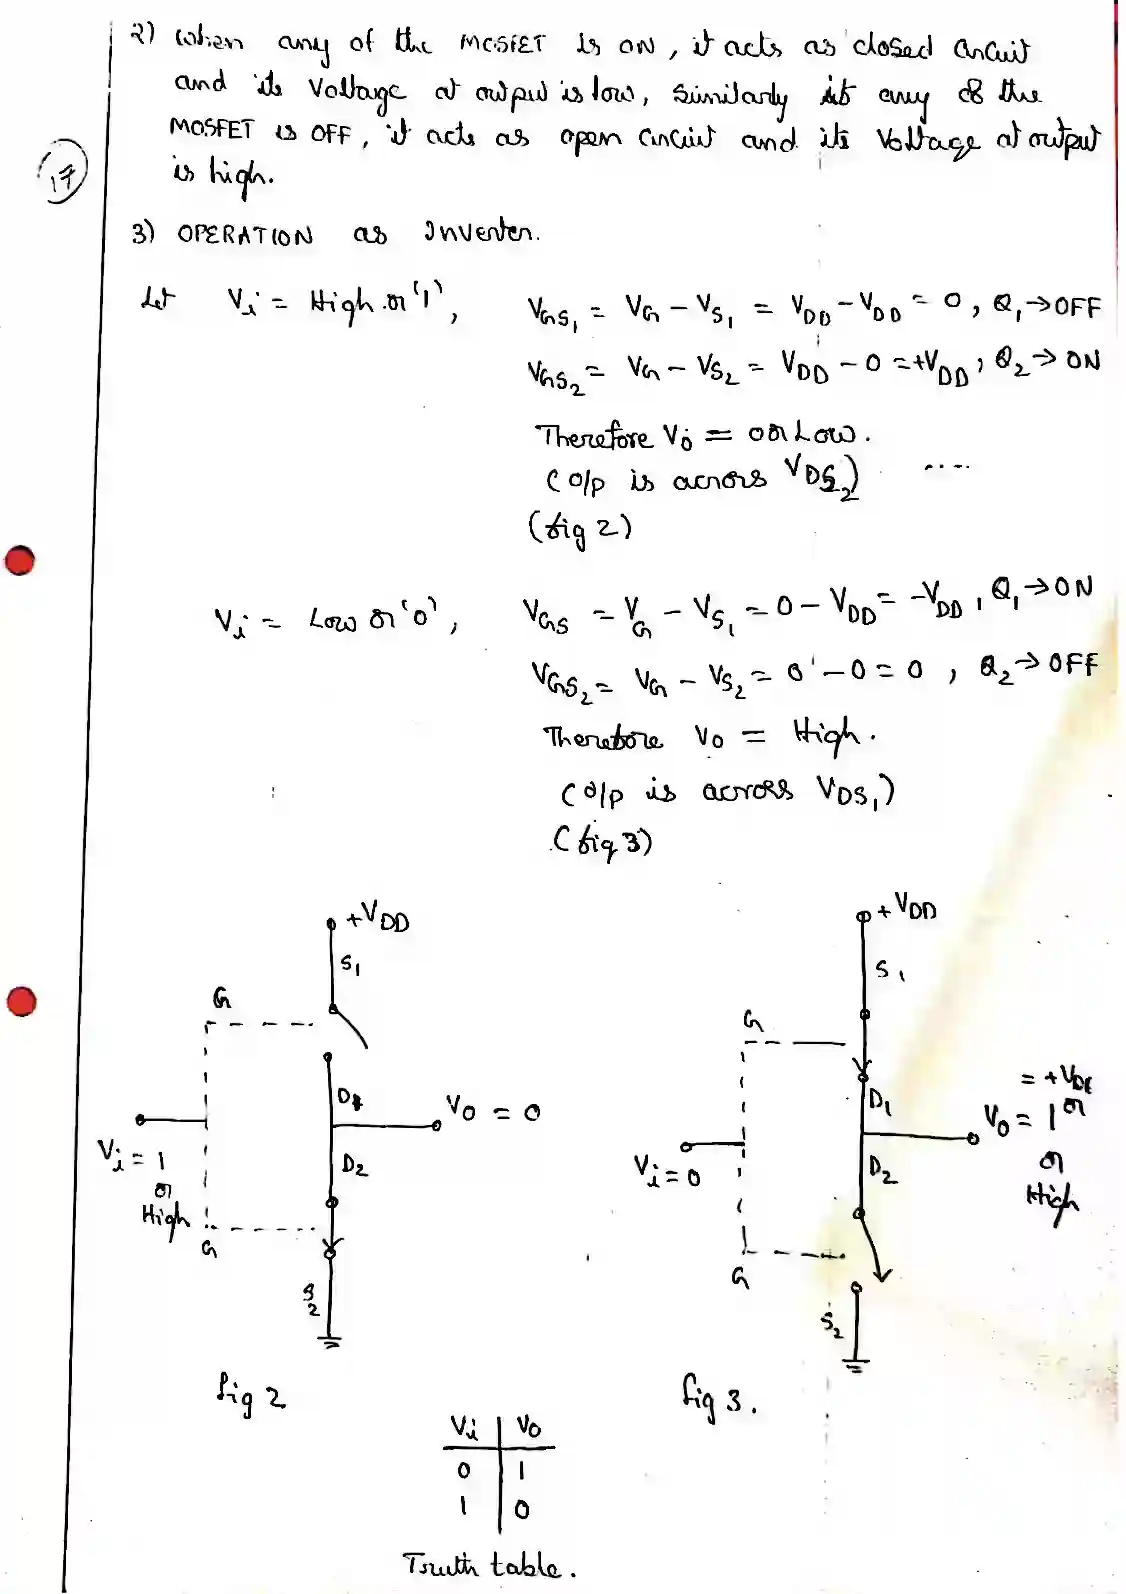 2) When any of the MOSFET is ON, it acts as closed circuit
and its Voltage at output is low, Similarly if any of the
MOSFET is OFF, it acts as open circuit and its Voltage at output
is high.
17
3) OPERATION as Inverter.
Let Vi = High or '1', VGS1 = VG - VS1 = VDD - VDD = 0, Q1→OFF
VGS2 = VG - VS2 = VDD - 0 = +VDD, Q2→ON
Therefore Vo = 0 or Low.
(o/p is across VDS2)
(fig 2)
Vi = Low or '0', VGS = VG - VS1 = 0 - VDD = -VDD, Q1→ON
VGS2 = VG - VS2 = 0 - 0 = 0, Q2→OFF
Therefore Vo = High.
(o/p is across VDS1)
(fig 3)
+VDD
S1
G
D1
Vo = 0
Vi = 1
or
High
D2
G
S2
fig 2
+VDD
S1
G
D1
= +VDD
Vo = 1 or
or
High
Vi = 0
D2
G
S2
fig 3.
Vi Vo
0 1
1 0
Truth table.